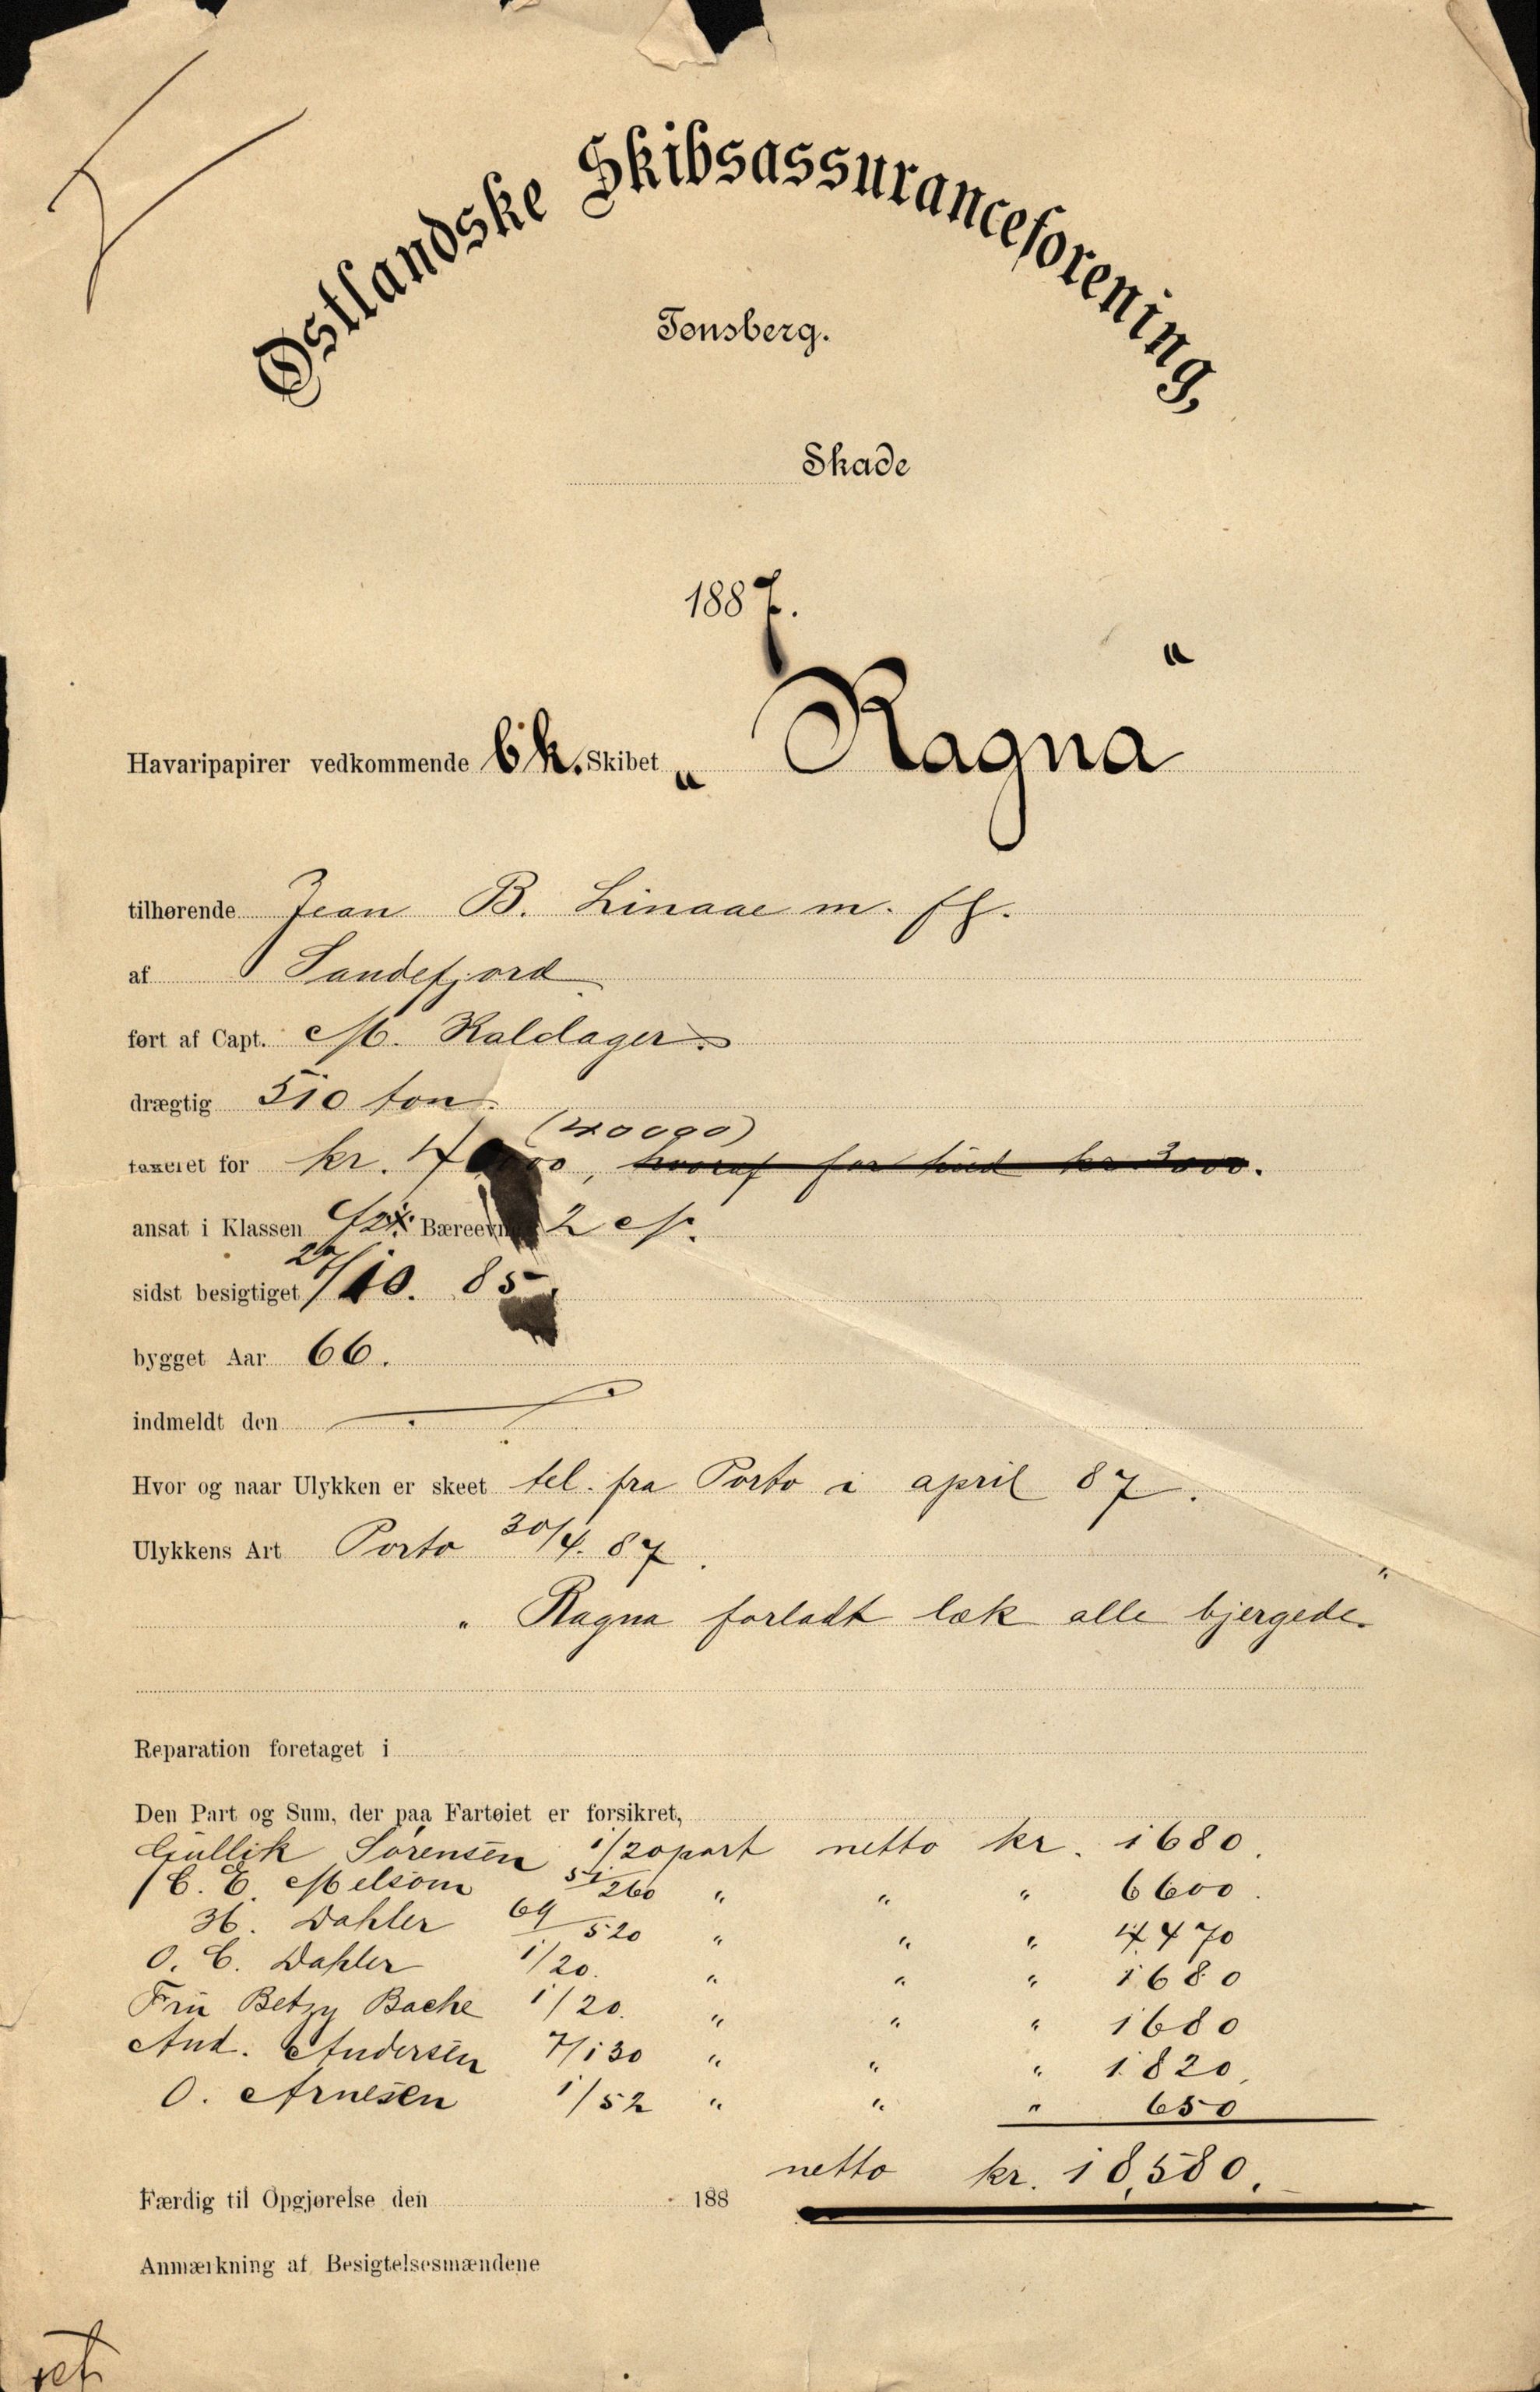 Østlandske Skibsassuranceforening,
Tønsberg.
Skade
1887.
Havaripapirer vedkommende bk. Skibet „ Ragna “
tilhørende Jean B. Linaae m. fl.
af Sandefjord
ført af Capt. M. Kaldager.
drægtig 510 ton.
(40000)
taxeret for kr. hvoraf for hud kr 3000.
ansat i Klassen Bæreevne 2
sidst besigtiget 27/10. 85.
bygget Aar 66.
indmeldt den
Hvor og naar Ulykken er skeet tel. fra Porto i april 87.
Ulykkens Art Porto 30/4. 87.
„ Ragna forladt læk alle bjergede. “
Reparation foretaget i
Den Part og Sum, der paa Fartøiet er forsikret,
Gullik Sørensen 1/20 part netto kr. 1680.
C. E. Melsom 51/260 " " " 6600.
H. Dahler 69/520 " " " 4470
O. C. Dahler 1/20. " " " 1680
Fru Betzy Bache 1/20. " " " 1680
And. Andersen 7/130 " " " 1820.
O. Arnesen 1/52 " " " 650
netto kr. 18,580.
Færdig til Opgjørelse den 188
Anmærkning af Besigtelsesmændene